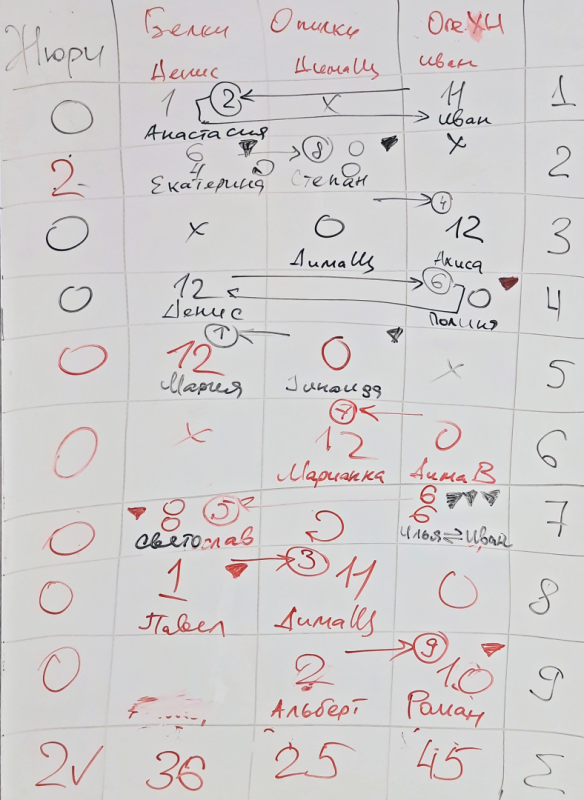 Жюри Белки Опилки Орехи
Денис ДимаЩ Иван
0 1 2 x 11 1
Анастасия Иван
2 6 4 8 0 0 x 2
Екатерина Степан
4
0 x 0 12 3
ДимаЩ Алиса
0 12 6 0 4
Денис Полина
1
0 12 0 x 5
Мария Зинаида
7
0 x 12 0 6
Марианка ДимаВ
0 0 0 5 6 6 7
Светослав Илья⇄Иван
0 1 3 11 0 8
Павел ДимаЩ
9
0 2 10 9
Альберт Роман
2√ 36 25 45 Σ